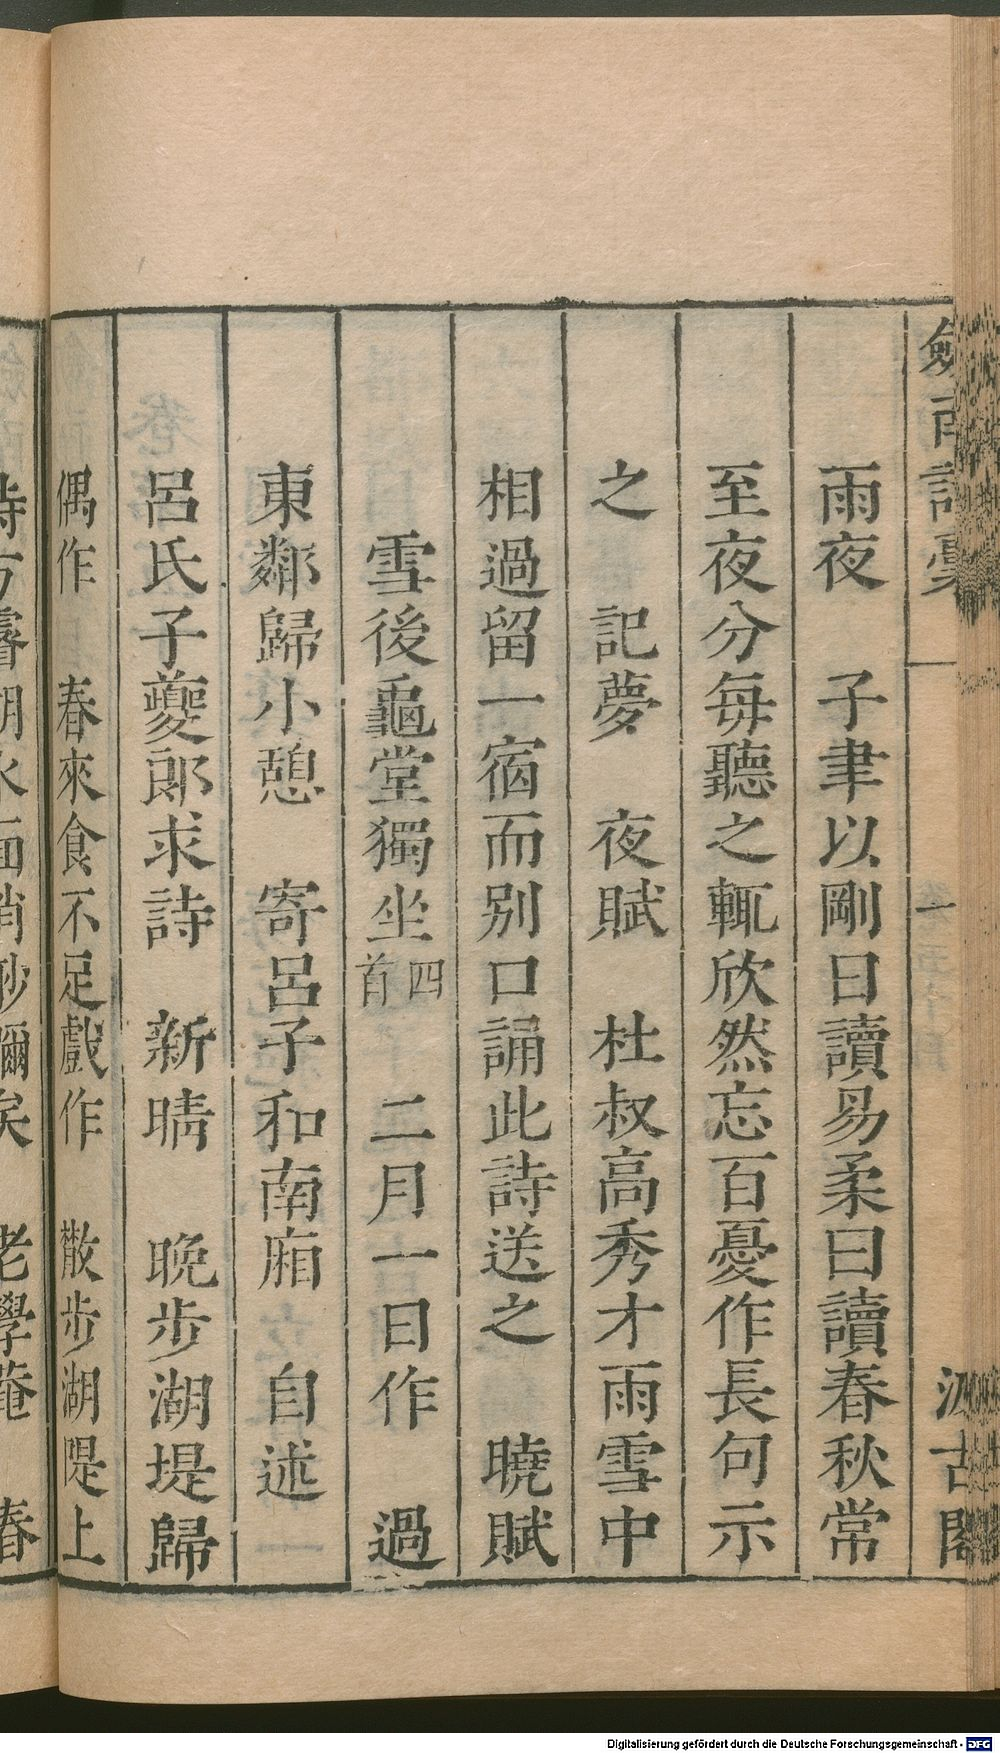 劎南詩稾 一 汲古閣
雨夜　子聿以剛日讀易柔日讀春秋常
至夜分每聽之輒欣然忘百憂作長句示
之　記夢　夜賦　杜叔高秀才雨雪中
相過留一宿而别口誦此詩送之　曉賦
雪後龜堂獨坐四首　二月一日作　過
東鄰歸小憩　寄呂子和南廂　自述
呂氏子夔郎求詩　新晴　晚步湖堤歸
偶作　春來食不足戲作　散步湖隄上
老學菴　春
Digitalisierung gefördert durch die Deutsche Forschungsgemeinschaft - DFG